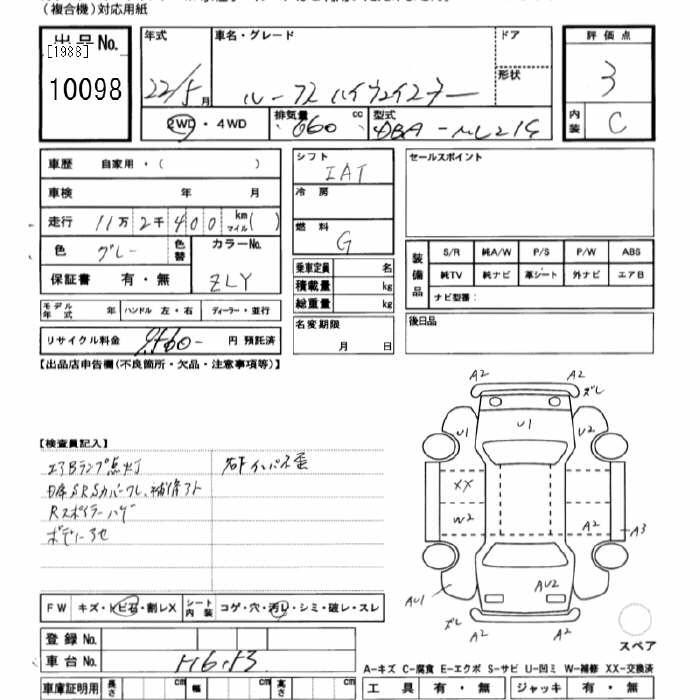 (複合機)対応用紙
出品No.
[1988]
10098
年式
22/5月
車名・グレード
ドア
形状
2WD・4WD
排気量 660 cc
型式
評価点
3
内装
C
車歴 自家用・( )
車検 年 月
走行 11万2千400 km マイル ( )
色 グレー 色替
カラーNo.
ZLY
保証書 有・無
モデル年式 年 ハンドル 左・右 ディーラー・並行
リサイクル料金 円 預託済
シフト
IAT
冷房
燃料
G
乗車定員 名
積載量 kg
総重量 kg
名変期限
月 日
セールスポイント
装備品
S/R 純A/W P/S P/W ABS
純TV 純ナビ 革シート 外ナビ エアB
ナビ型番:
後日品
【出品店申告欄(不良箇所・欠品・注意事項等)】
【検査員記入】
エアBランプ点灯
Rスポイラーハゲ
A2 A2
ズレ
U1 U1 U2
XX
W2
A2
A3
AU1
AU2
ズレ
A2 A2
スペア
FW キズ・トビ石・割レX シート内装 コゲ・穴・汚レ・シミ・破レ・スレ
登録No.
車台No.
車庫証明用 長さ cm 幅 cm 高さ cm
A-キズ C-腐食 E-エクボ S-サビ U-凹ミ W-補修 XX-交換済
工具 有・無 ジャッキ 有・無